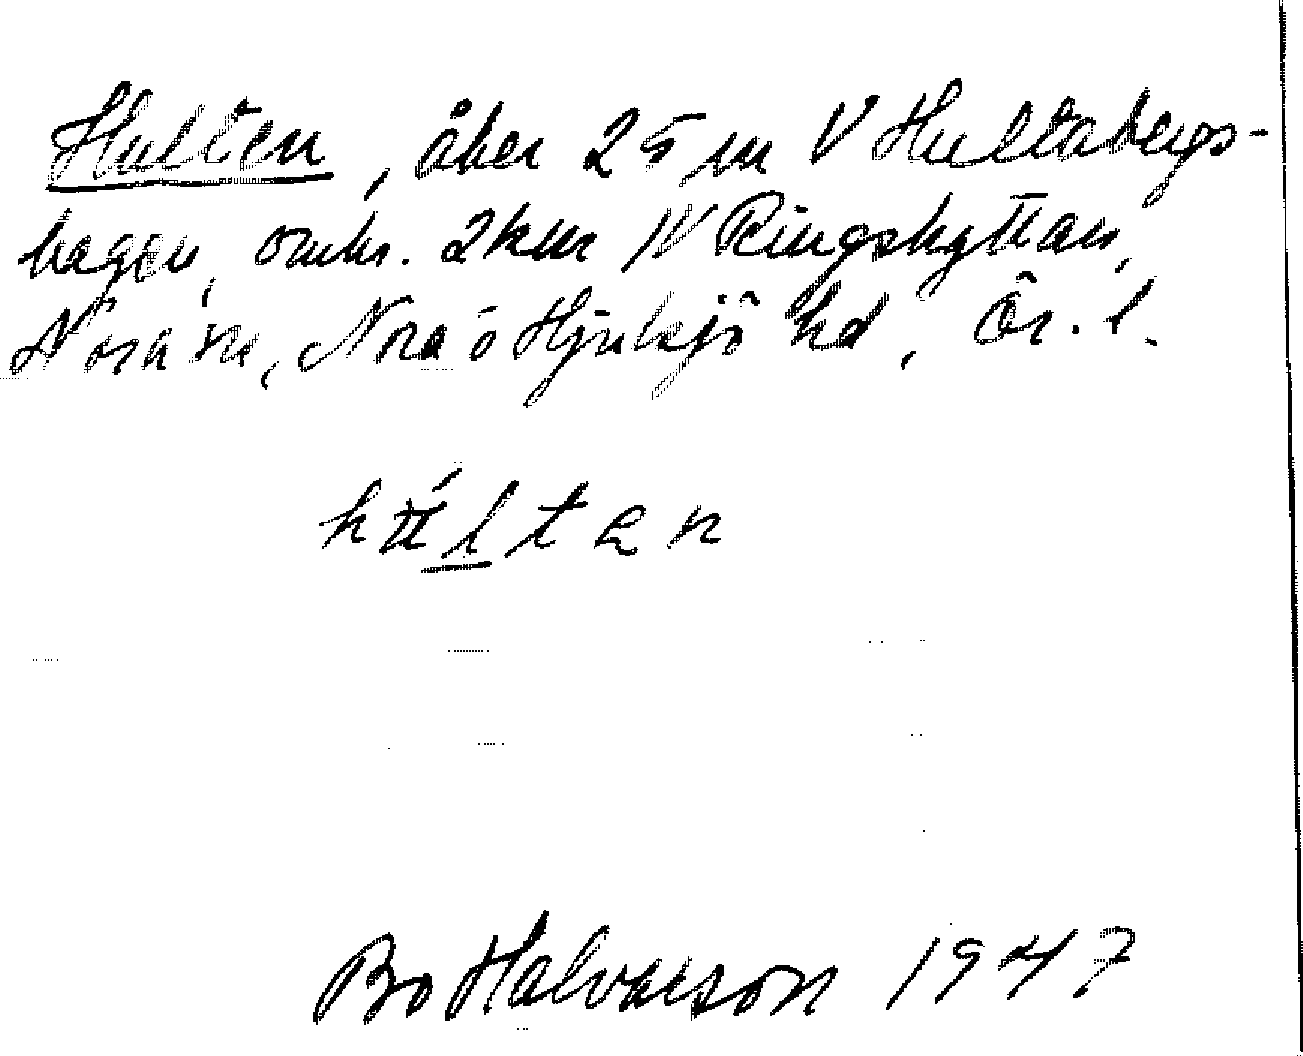 Hulten, åker 25 m V Hultabergs-
hagen, omkr. 2 km N Ringshyttan,
Nora sn, Nora o Hjulsjö hd, Ör. l.
hu̇́lten
Bo Halvarson 1947